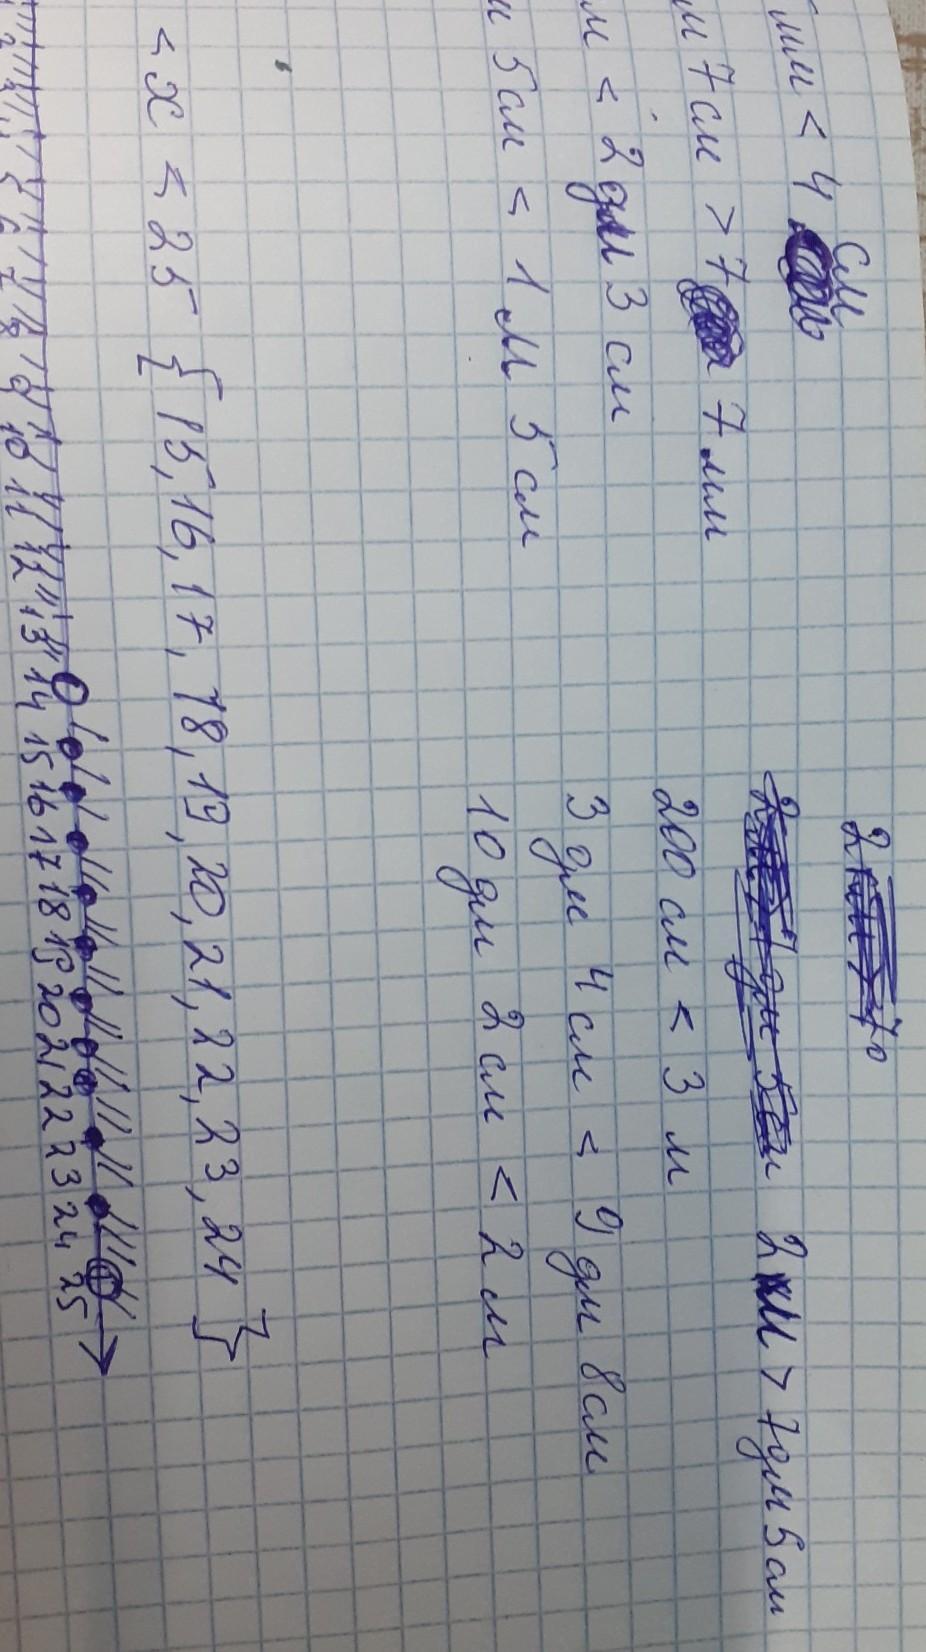 мм < 4 см 2 м > 7 дм 5 см
7 см > 7 7 мм 200 см < 3 м
м < 2 дм 3 см 3 дм 4 см < 9 дм 8 см
5 см < 1 м 5 см 10 дм 2 см < 2 м
< x ≤ 25 {15, 16, 17, 18, 19, 20, 21, 22, 23, 24}
6 7 8 9 10 11 12 13 14 15 16 17 18 19 20 21 22 23 24 25